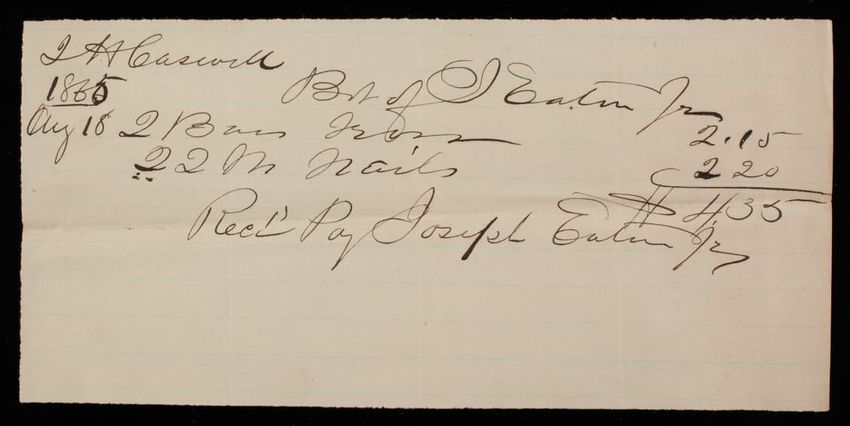 T H Caswell
1865 Bot of J Eaton Jr
Aug 18 2 Bars Iron 2.15
22 lb Nails 2 20
$ 4,35
Rec'd Pay Joseph Eaton Jr